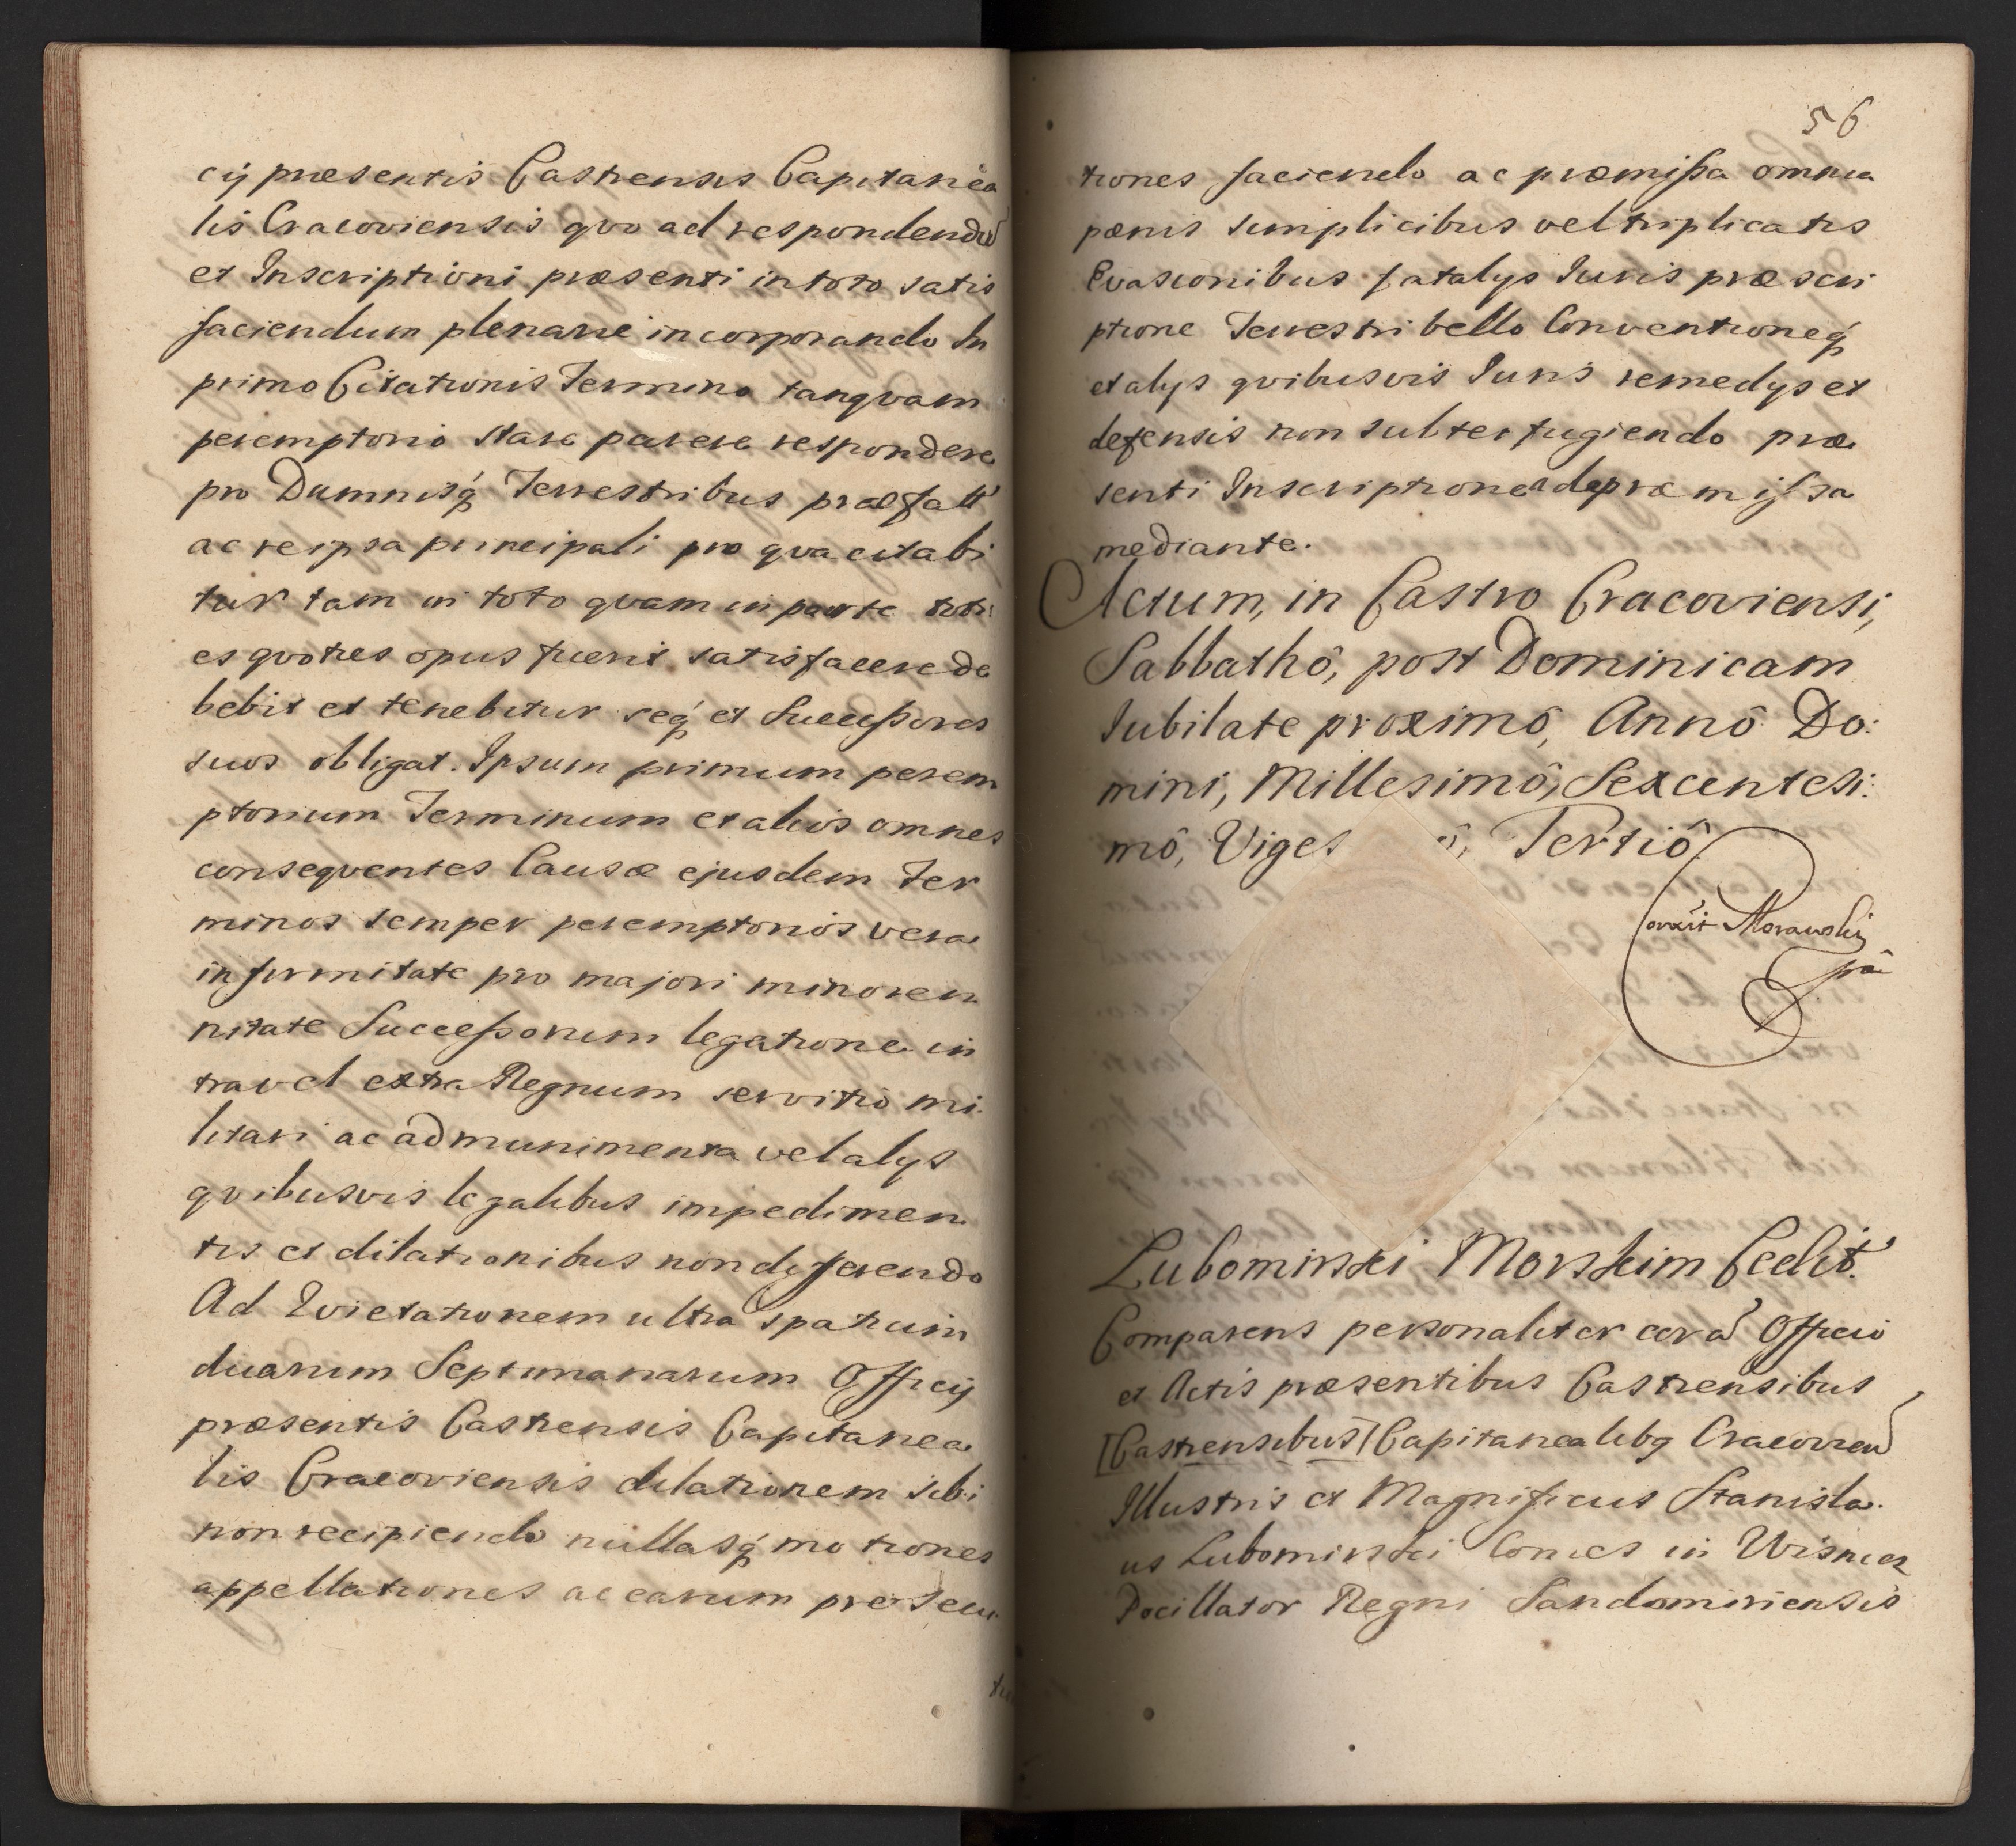 cij præsentis Castrensis Capitanea
lis Cracoviensis qvo ad respondendu
et Inscriptioni præsenti in toto satis
faciendum plenarie incorporando In
primo Citationis Termino tanqvam
peremptorio stare parere respondere
pro Damnisq́ Terrestribus præfatt
ac re ipsa principali pro qva citabi
tur tam in toto qvam in parte toti
es qvoties opus fuerit satisfacere de
bebit et tenebitur seq́ et Successores
suos obligat. Ipsum primum perem
ptorium Terminum et alios omnes
conseqventes Causæ ejusdem Ter
minos semper peremptorios vera
infirmitate pro majori minoren
nitate Successorum legatione in
tra vel extra Regnum servitio mi
litari ac ad munimenta vel alys
qvibusvis legalibus impedimen
tis et dilationibus non differendo
Ad Evictationem ultra spatium
duarum Septimanarum Officij
præsentis Castrensis Capitanea
lis Cracoviensis dilationem sibi
non recipiendo nullasq́ motiones
appellationes ac earum prosecu
56
tiones faciendo ac præmissa omnia
pænis simplicibus vel triplicatis
Evasionibus fatalys Juris præscri
ptione Terrestri bello Conventioneq́
et alys qvibusvis Juris remedys et
defensis non subterfugiendo præ
senti Inscriptione de præmissa
mediante.
Actum, in Castro Cracoviensi,
Sabbathô, post Dominicam
Jubilate proximô, Annô Do:
mini, Millesimô, Sexcentesi:
mô, Viges ô, Tertiô
Morawski
Lubomirski Morskim Cedit.
Comparens personaliter cora Officio
et Actis præsentibus Castrensibus
[Castrensibus] Capitanealibq Cracovien
Illustris et Magnificus Stanisla
us Lubomirski Comes in Wisnicz
Pocillator Regni Sandomiriensis